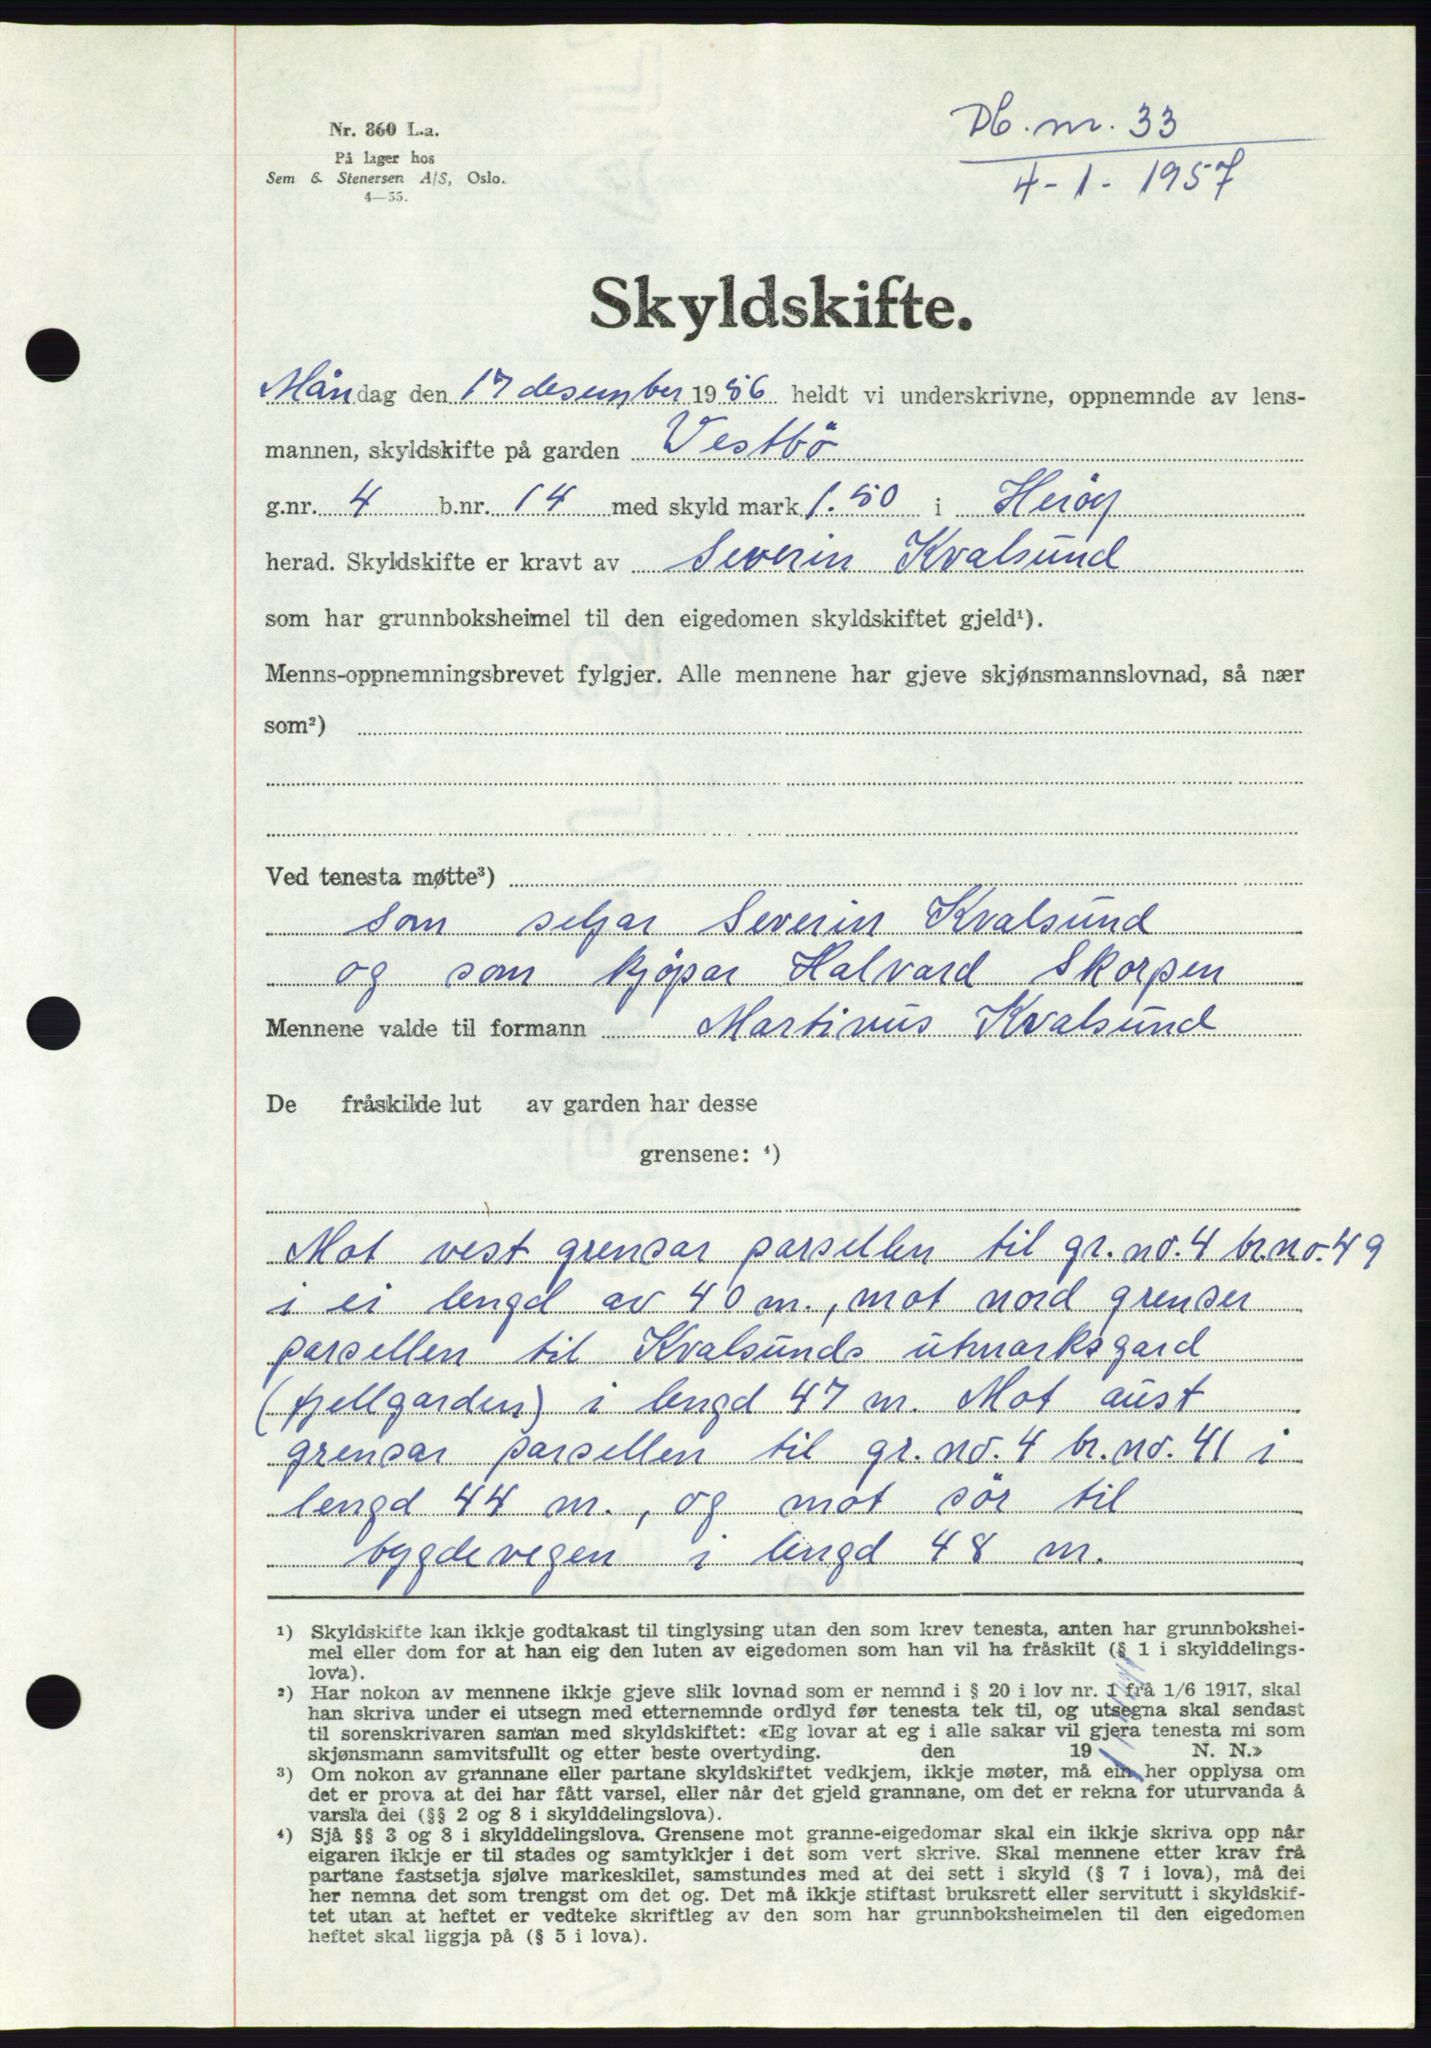 Nr. 860 L.a.
På lager hos
Sem & Stenersen A/S, Oslo.
4—55.
Db. nr. 33
4-1-1957
Skyldskifte.
Måndag den 17 desember 1956 heldt vi underskrivne, oppnemnde av lens-
mannen, skyldskifte på garden Vestbö
g.nr. 4 b.nr. 14 med skyld mark 1.50 i Heröy
herad. Skyldskifte er kravt av Severin Kvalsund
som har grunnboksheimel til den eigedomen skyldskiftet gjeld¹).
Menns-oppnemningsbrevet fylgjer. Alle mennene har gjeve skjønsmannslovnad, så nær
som²)
Ved tenesta møtte³)
som seljar Severin Kvalsund
og som kjöpar Halvard Skorpen
Mennene valde til formann Martinus Kvalsund
De fråskilde lut av garden har desse
grensene: ⁴)
Mot vest grensar parsellen til gr.no.4 br.no.49
i ei lengd av 40 m., mot nord grenser
parsellen til Kvalsunds utmarksgard
(fjellgarden) i lengd 47 m. Mot aust
grensar parsellen til gr.no.4 br.no.41 i
lengd 44 m., og mot sör til
bygdevegen i lengd 48 m.
¹) Skyldskifte kan ikkje godtakast til tinglysing utan den som krev tenesta, anten har grunnbokshei-
mel eller dom for at han eig den luten av eigedomen som han vil ha fråskilt (§ 1 i skylddelings-
lova).
²) Har nokon av mennene ikkje gjeve slik lovnad som er nemnd i § 20 i lov nr. 1 frå 1/6 1917, skal
han skriva under ei utsegn med etternemnde ordlyd før tenesta tek til, og utsegna skal sendast
til sorenskrivaren saman med skyldskiftet: «Eg lovar at eg i alle sakar vil gjera tenesta mi som
skjønsmann samvitsfullt og etter beste overtyding. den 19 N. N.»
³) Om nokon av grannane eller partane skyldskiftet vedkjem, ikkje møter, må ein her opplysa om
det er prova at dei har fått varsel, eller når det gjeld grannane, om det er rekna for uturvanda å
varsla dei (§§ 2 og 8 i skylddelingslova).
⁴) Sjå §§ 3 og 8 i skylddelingslova. Grensene mot granne-eigedomar skal ein ikkje skriva opp når
eigaren ikkje er til stades og samtykkjer i det som vert skrive. Skal mennene etter krav frå
partane fastsetja sjølve markeskilet, samstundes med at dei sett i skyld (§ 7 i lova), må dei
her nemna det som trengst om det og. Det må ikkje stiftast bruksrett eller servitutt i skyldskif-
tet utan at heftet er vedteke skriftleg av den som har grunnboksheimelen til den eigedomen
heftet skal liggja på (§ 5 i lova).